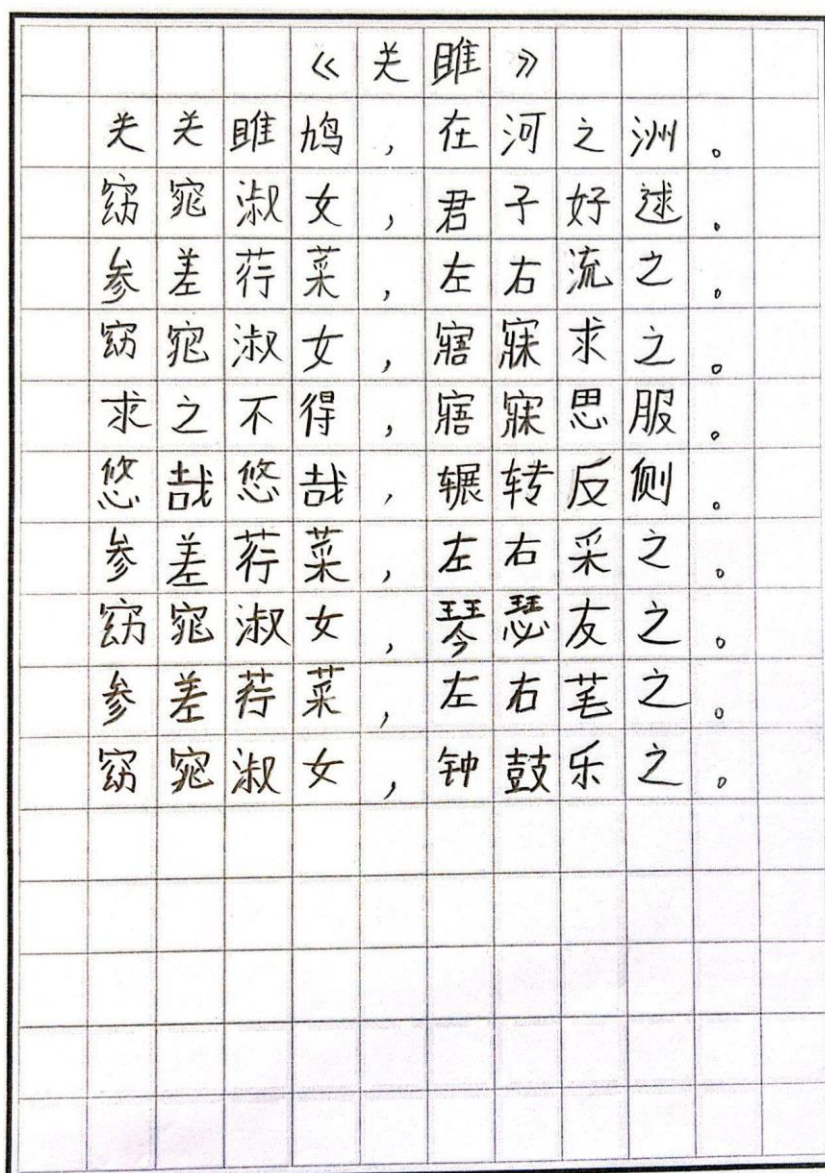 《关雎》
关关雎鸠,在河之洲。
窈窕淑女,君子好逑。
参差荇菜,左右流之。
窈窕淑女,寤寐求之。
求之不得,寤寐思服。
悠哉悠哉,辗转反侧。
参差荇菜,左右采之。
窈窕淑女,琴瑟友之。
参差荇菜,左右芼之。
窈窕淑女,钟鼓乐之。